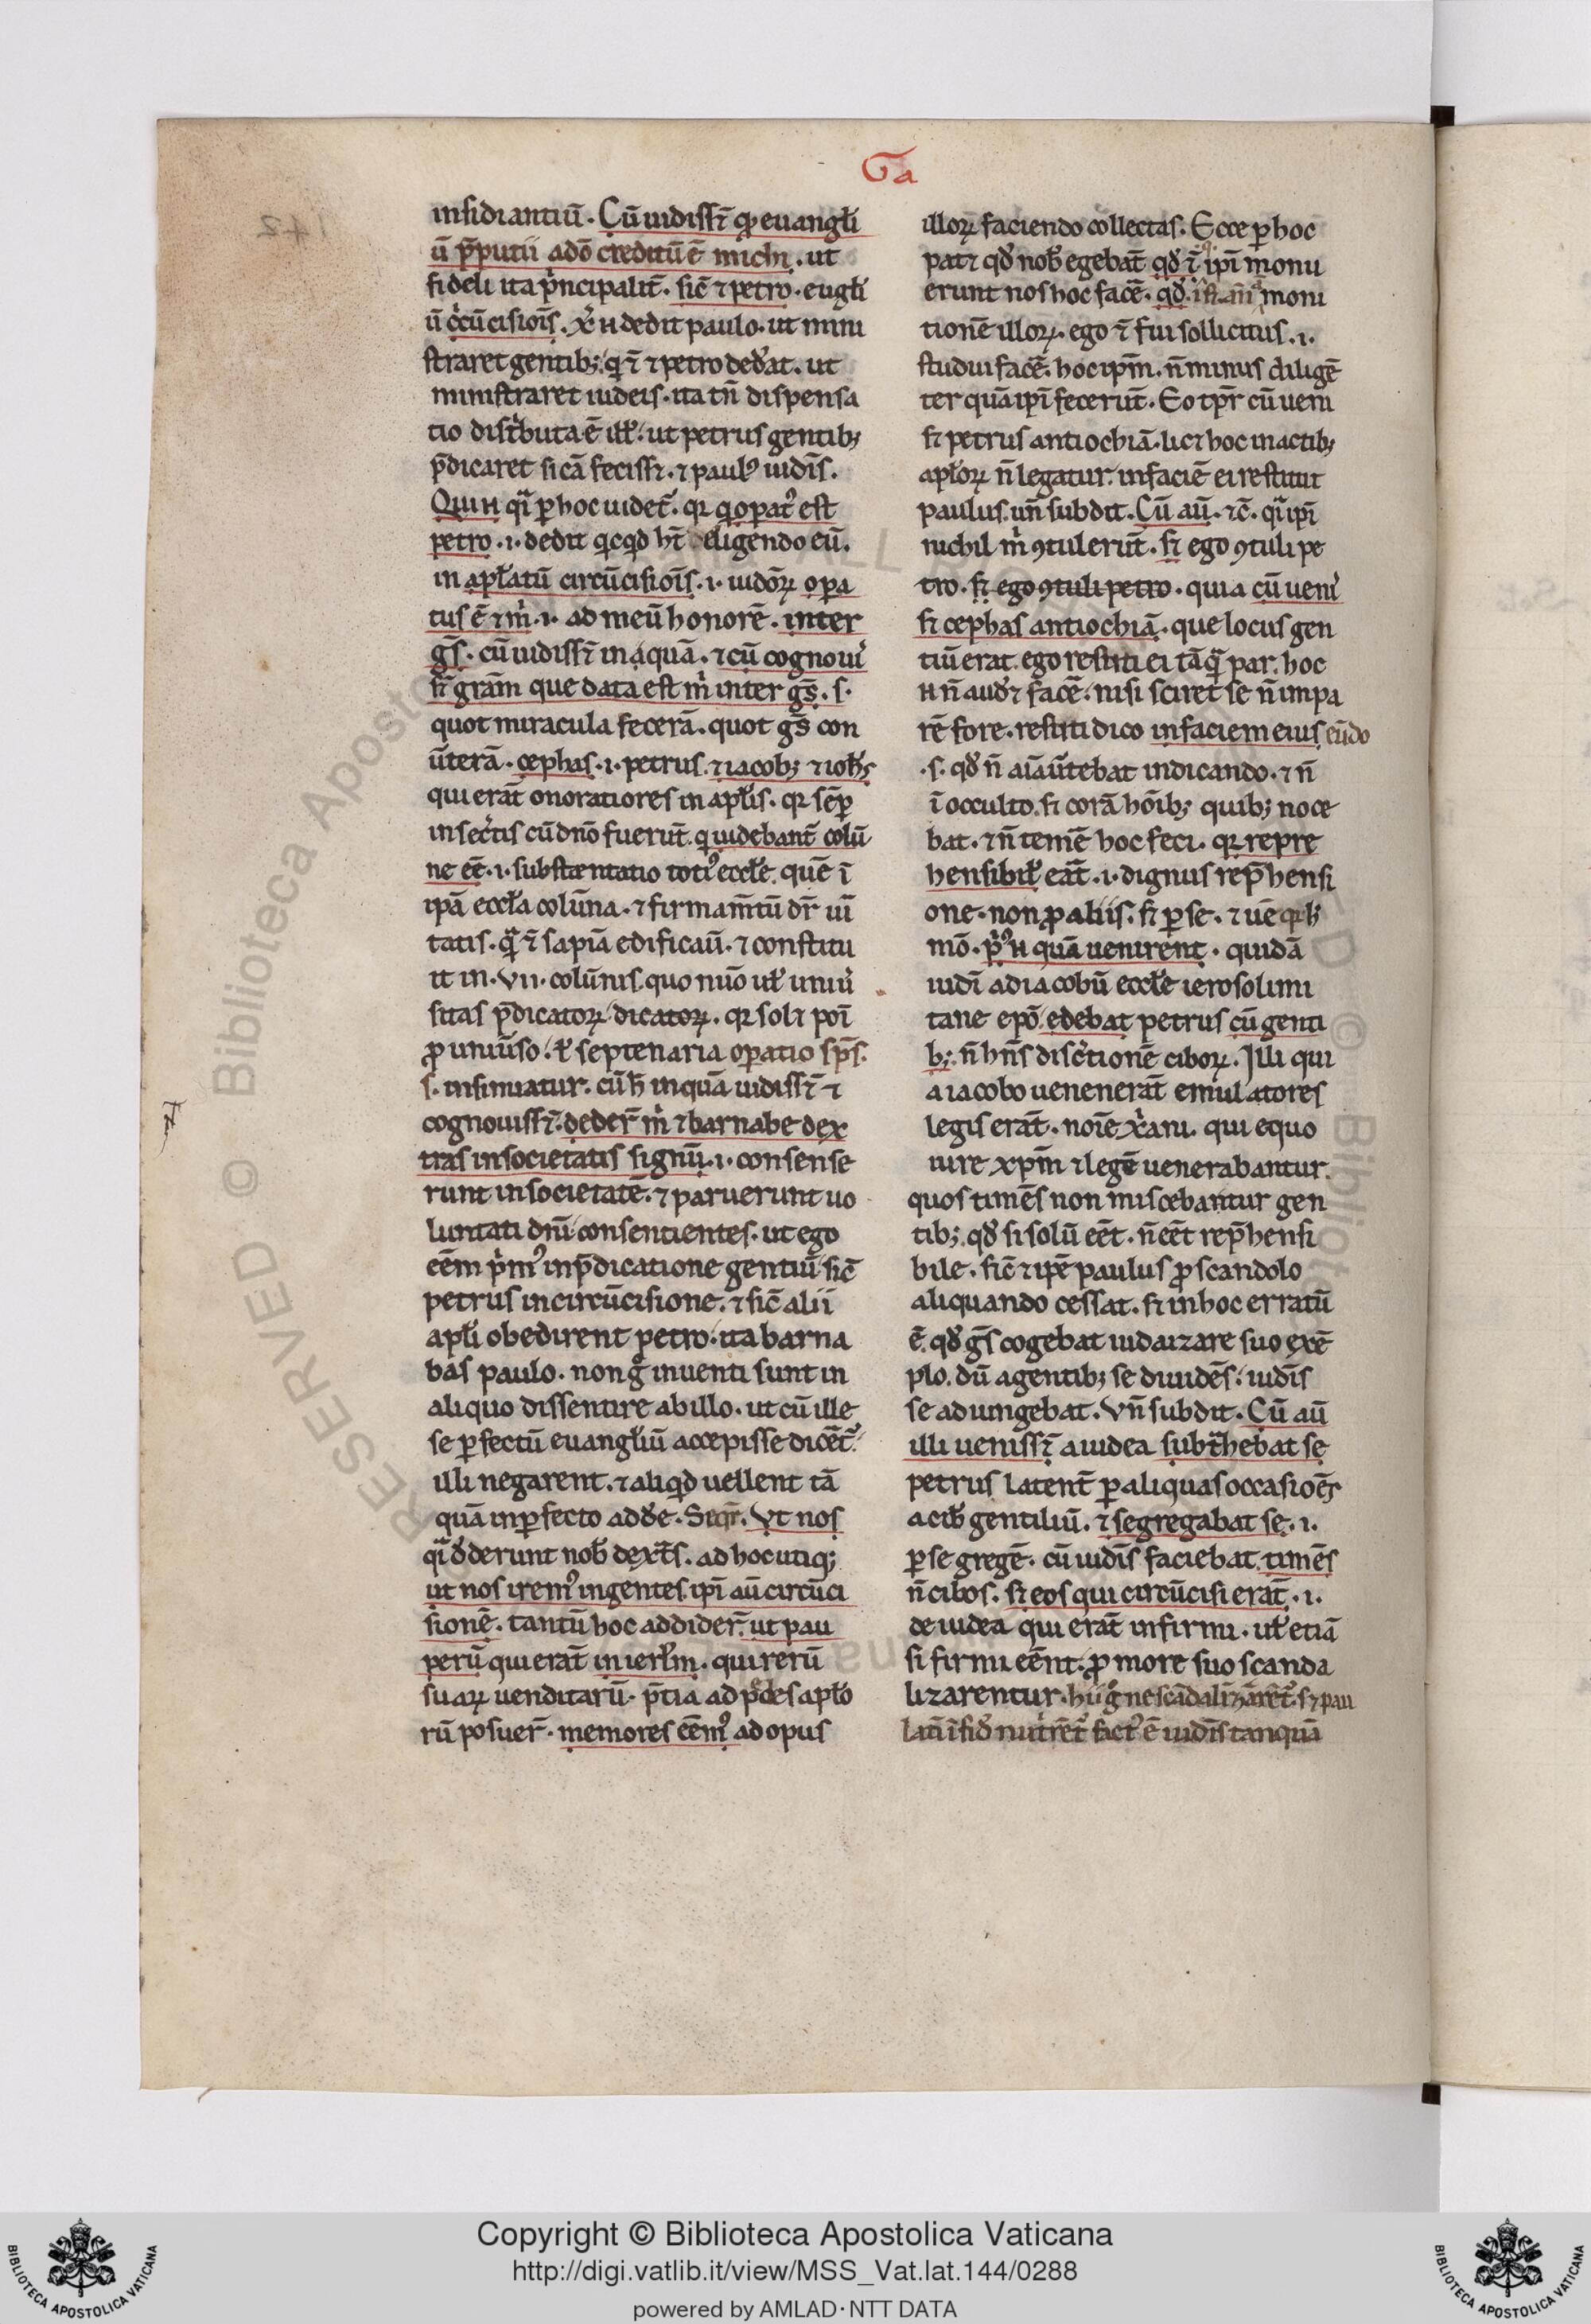 Ga
insidiantiū. Cū uidissēt qꝫ euangłi
ū p̄putii adō creditū ē michi. ut
fideli ita p̀ncipalit̄. sic̄ ⁊ petro. eugłi
ū c̀cūcisiois̄. xp̄c n̄ dedit paulo. ut mini
straret gentibꝫ. ꝙ ⁊ petro dedat. ut
ministraret iudeis. ita tn̄ dispensa
tio dist̀buta ē ill. ut petrus gentibꝫ
p̄dicaret si cā fecisset. ⁊ paulꝰ iudīs.
petro .i. dedit qcqd ht̄ eligendo eū.
in apłatū circūcisiois̄ .i. iudōꝝ opa
tus ē ⁊ m̀ .i. ad meū honorē. inter
gs̄. cū uidissēt inquā. ⁊ cū cognoui
sēt grām que data est m̀ inter gs̄. s.
quot miracula fecerā. quot gs̄ con
ūterā. cephas .i. petrus. ⁊ iacobꝫ ⁊ ioħs
qui erāt onoratiores in apłis. qꝛ sēp
in sec̀tis cū dnō fuerūt. q uidebant̄ colū
ne eē .i. substentatio totꝰ eccłe. quē ī
ipā eccła colūna. ⁊ firmam̄tū dr̄ ui
tatis. ꝙ ⁊ sapiā edificaū. ⁊ constitu
it in .vii. colūnis. quo nūo uł uniū
sitas p̄dicatoꝝ dicatoꝝ. qꝛ solet poī
ꝓ uniūso. ł septenaria operatio sps̄.
s. insinuatur. cū h̄ inquā uidissēt ⁊
cognouissēt. deder̄ m̀ ⁊ barnabe dex
tras in societatis signū .i. consense
runt in societatē. ⁊ paruerunt uo
luntati dnī consentientes. ut ego
eēm p̀mꝰ in p̄dicatione gentiū sic̄
petrus in circūcisione. ⁊ sic̄ alii
apłi obedirent petro. ita barna
bas paulo. non g̀ inuenti sunt in
aliquo dissentire ab illo. ut cū ille
se ꝑfectū euangłiū accepisse dicēt.
illi negarent. ⁊ aliqd uellent tā
quā inꝑfecto addē. Seqr̄. Vt nos
qͥ dederunt nob dext̄s. ad hoc utiqꝫ
ut nos iremꝰ in gentes. ipī aū circūci
sionē. tantū hoc addider̄. ut pau
perū qui erāt in ierłm. qui rerū
suaꝝ uenditarū. p̄tia ad pedes apło
rū posuer̄. memores eēmꝰ ad opus
illoꝝ faciendo collectas. Ecce ꝑ hoc
patet qd nob egebāt qd ⁊ ipī monu
erunt nos hoc facē. qd moni
tionē illoꝝ. ego ⁊ fui sollicitus .i.
studui facē. hoc ipm̄. n̄ minus diligē
ter quā ipī fecerūt. Eo tpr̄ cū ueni
set petrus antiochiā. licet hoc in actibꝫ
apłoꝝ n̄ legatur. in faciē ei restitit
paulus. un̄ subdit. Cū aū. ⁊c̄. qͣ ipī
nichil m̀ ꝯtulerūt. sꝫ ego ꝯtuli pe
tro. sꝫ ego ꝯtuli petro. quia cū ueni
set cephas antiochiā. que locus gen
tiū erat. ego restiti ei tāqͣ par. hoc
n̄ n̄ audet facē. nisi sciret se n̄ impa
rē fore. restiti dico in faciem eius eūdo
.s. qd n̄ aiāūtebat indicando. ⁊ n̄
ī occulto. sꝫ corā hoībꝫ quibꝫ noce
bat. ⁊ n̄ temē hoc feci. qꝛ repre
hensibił eāt .i. dignus rep̄hensi
one. non ꝓ aliis. sꝫ ꝑ se. ⁊ uē
mō. p̀ꝰ n̄ quā uenirent. quidā
iudī ad iacobū eccłe ierosolimi
tane epō. edebat petrus cū genti
bꝫ. n̄ hn̄s disc̀tionē ciboꝝ. Illi qui
a iacobo uenenerāt emulatores
legis erāt. noīe xp̀ani. qui equo
iure xpm̄ ⁊ legē uenerabantur.
quos timēs non miscebantur gen
tibꝫ. qd si solū eēt. n̄ eēt rep̄hensi
bile. sic̄ ⁊ ipē paulus ꝓ scandolo
aliquando cessat. sꝫ in hoc erratū
ē. qd gs̄ cogebat iudaizare suo exē
plo. dū a gentibꝫ se diuidēs. iudīs
se adiungebat. Vn̄ subdit. Cū aū
illi uenissēt a iudea subt̀hebat se
petrus latent̄ ꝑ aliquas occasiōes
a cib gentiliū. ⁊ segregabat se .i.
ꝑ se gregē. cū iudīs faciebat. timēs
n̄ cibos. sꝫ eos qui circūcisi erāt .i.
de iudea qui erāt infirmi. uł etiā
si firmi eēnt. ꝓ more suo scanda
lizarentur. hii g̀ ne scādalizarēt. sꝫ pau
latī ī fid nut̀rēt factꝰ ē iudīs tanquā
Copyright © Biblioteca Apostolica Vaticana
http://digi.vatlib.it/view/MSS_Vat.lat.144/0288
powered by AMLAD·NTT DATA
BIBLIOTECA APOSTOLICA VATICANA
BIBLIOTECA APOSTOLICA VATICANA